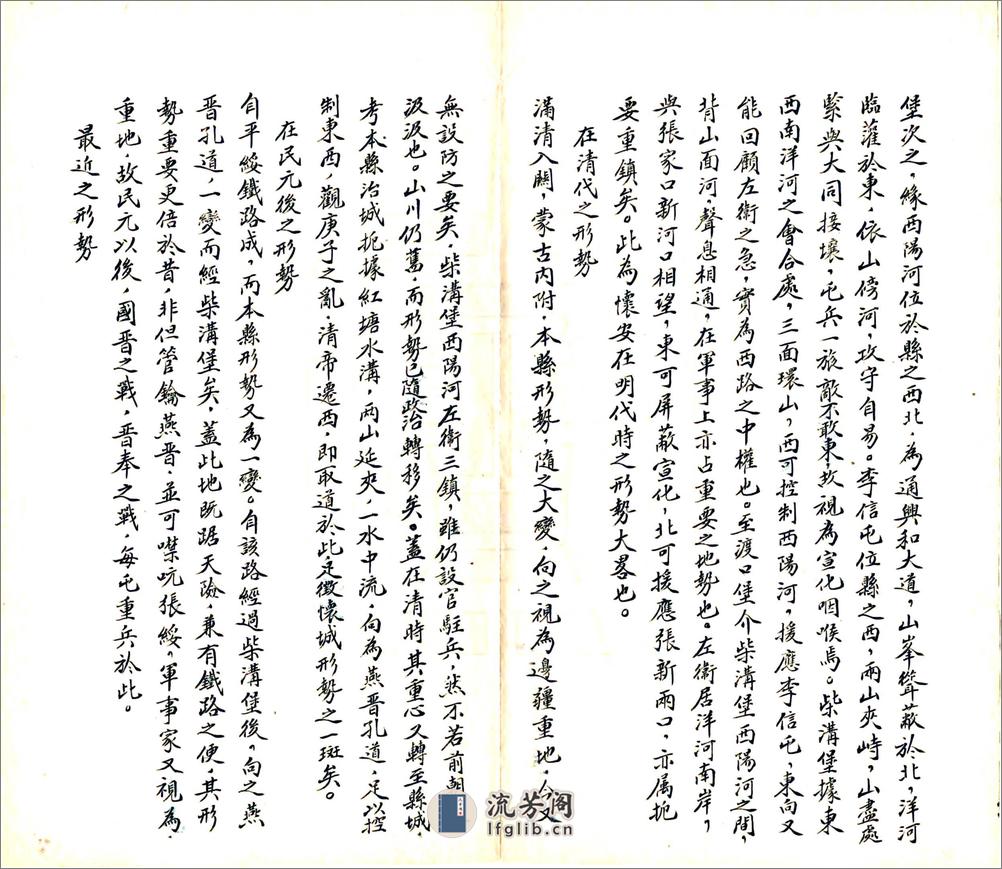 堡次之，緣西陽河位於縣之西北，為通興和大道，山峯聳蔽於北，洋河
臨灌於東，依山傍河，攻守自易。李信屯位縣之西，兩山夾峙，山盡處
緊與大同接壤，屯兵一旅敵不敢東，故視為宣化咽喉焉。柴溝堡據東
西南洋河之會合處，三面環山，西可控制西陽河，援應李信屯，東向又
能回顧左衛之急，實為西路之中權也。至渡口堡介柴溝堡西陽河之間，
背山面河，聲息相通，在軍事上亦占重要之地勢也。左衛居洋河南岸，
與張家口新河口相望，東可屏蔽宣化，北可援應張新兩口，亦属扼
要重鎮矣。此為懷安在明代時之形勢大畧也。
在清代之形勢
滿清入關，蒙古內附，本縣形勢，隨之大變，向之視為邊疆重地，今又
無設防之要矣，柴溝堡西陽河左衛三鎮，雖仍設官駐兵，然不若前朝
汲汲也。山川仍舊，而形勢已隨政治轉移矣。蓋在清時其重心又轉至縣城，
考本縣治城扼據紅塘水溝，兩山延夾，一水中流，向為燕晉孔道，足以控
制東西，觀庚子之亂，清帝遷西，即取道於此，足徵懷城形勢之一斑矣。
在民元後之形勢
自平綏鐵路成，而本縣形勢又為一變。自該路經過柴溝堡後，向之燕
晉孔道，一變而經柴溝堡矣，蓋此地既踞天險，兼有鐵路之便，其形
勢重要更倍於昔，非但管鑰燕晉，並可噤吭張綏，軍事家又視為
重地，故民元以後，國晉之戰，晉奉之戰，每屯重兵於此。
最近之形勢
流芳阁
lfglib.cn